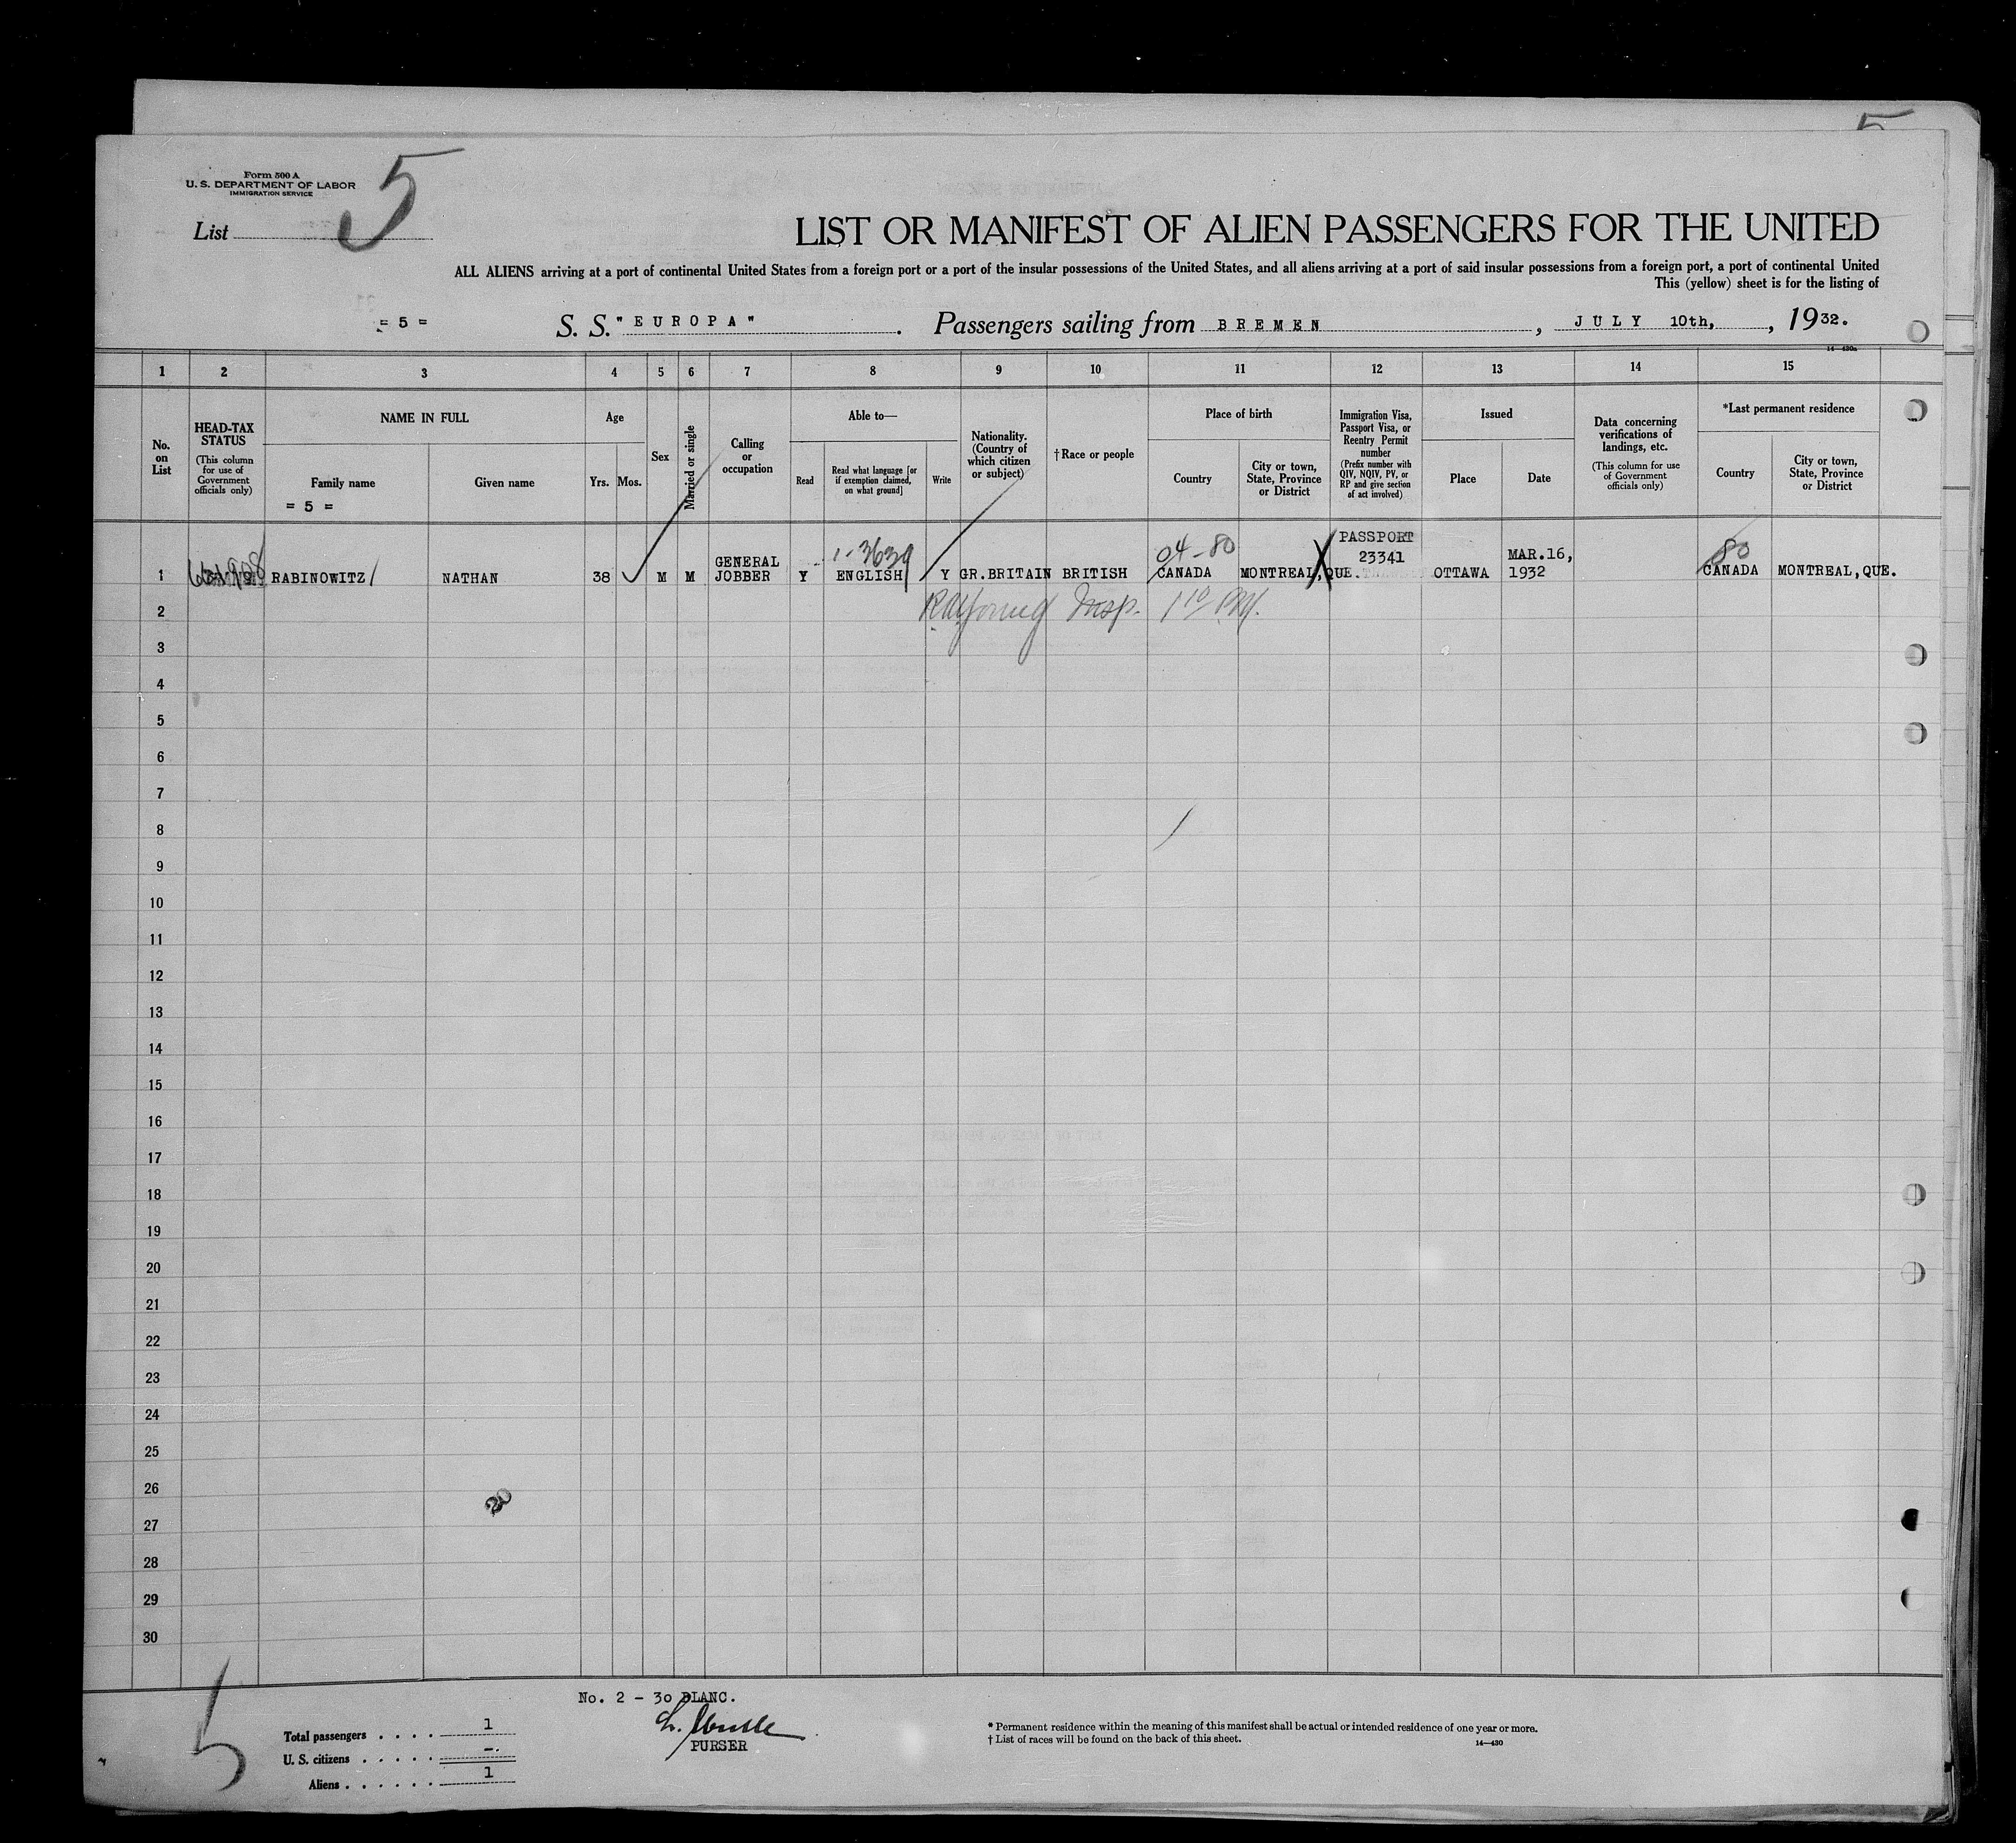 5
Form 500 A
U. S. DEPARTMENT OF LABOR
IMMIGRATION SERVICE
List 5
LIST OR MANIFEST OF ALIEN PASSENGERS FOR THE UNITED
ALL ALIENS arriving at a port of continental United States from a foreign port or a port of the insular possessions of the United States, and all aliens arriving at a port of said insular possessions from a foreign port, a port of continental United
This (yellow) sheet is for the listing of
= 5 = S. S. "EUROPA". Passengers sailing from BREMEN, JULY 10th, , 1932.
14—430a
1 2 3 4 5 6 7 8 9 10 11 12 13 14 15
No. on List
HEAD-TAX STATUS
(This column for use of Government officials only)
NAME IN FULL
Family name
= 5 =
Given name
Age
Yrs. Mos.
Sex
Married or single
Calling or occupation
Able to—
Read
Read what language [or if exemption claimed, on what ground]
Write
Nationality. (Country of which citizen or subject)
†Race or people
Place of birth
Country
City or town, State, Province or District
Immigration Visa, Passport Visa, or Reentry Permit number
(Prefix number with QIV, NQIV, PV, or RP and give section of act involved)
Issued
Place
Date
Data concerning verifications of landings, etc.
(This column for use of Government officials only)
*Last permanent residence
Country
City or town, State, Province or District
1-3639 04-80 PASSPORT 80
GENERAL 23341 MAR.16,
1 RABINOWITZ NATHAN 38 M M JOBBER Y ENGLISH Y GR.BRITAIN BRITISH CANADA MONTREAL,QUE. OTTAWA 1932 CANADA MONTREAL,QUE.
2 Insp. 1 10 PM.
3
4
5
6
7
8
9
10
11
12
13
14
15
16
17
18
19
20
21
22
23
24
25
26
27
28
29
30
20
5
No. 2 - 30 BLANC.
PURSER
Total passengers . . . . 1
U. S. citizens . . . . . -.
Aliens . . . . . . 1
* Permanent residence within the meaning of this manifest shall be actual or intended residence of one year or more.
† List of races will be found on the back of this sheet.
14—430